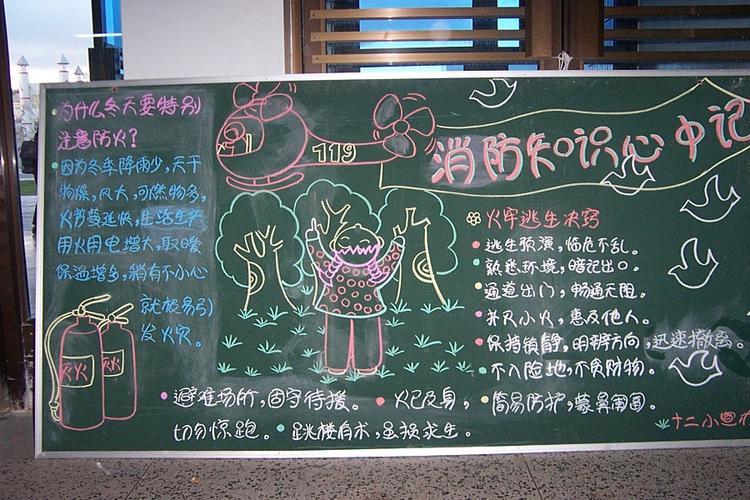 为什么冬天要特别
注意防火?
因为冬季降雨少,天干
物燥,风大,可燃物多,
火势蔓延快,生活生产
用火用电增大,取暖
保温增多,稍有不小心
就极易引
发火灾。
灭火
灭火
119
消防知识心中记
火灾逃生决窍
逃生预演,临危不乱。
熟悉环境,暗记出口。
通道出门,畅通无阻。
扑灭小火,惠及他人。
保持镇静,明辨方向,迅速撤离。
不入险地,不贪财物。
避难场所,固守待援。
火已及身,
切勿惊跑。
简易防护,蒙鼻匍匐。
跳楼有术,虽损求生。
十二小宣